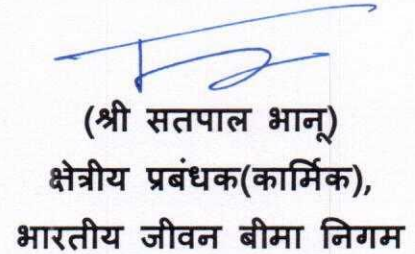 (श्री सतपाल भानू)
क्षेत्रीय प्रबंधक(कार्मिक),
भारतीय जीवन बीमा निगम